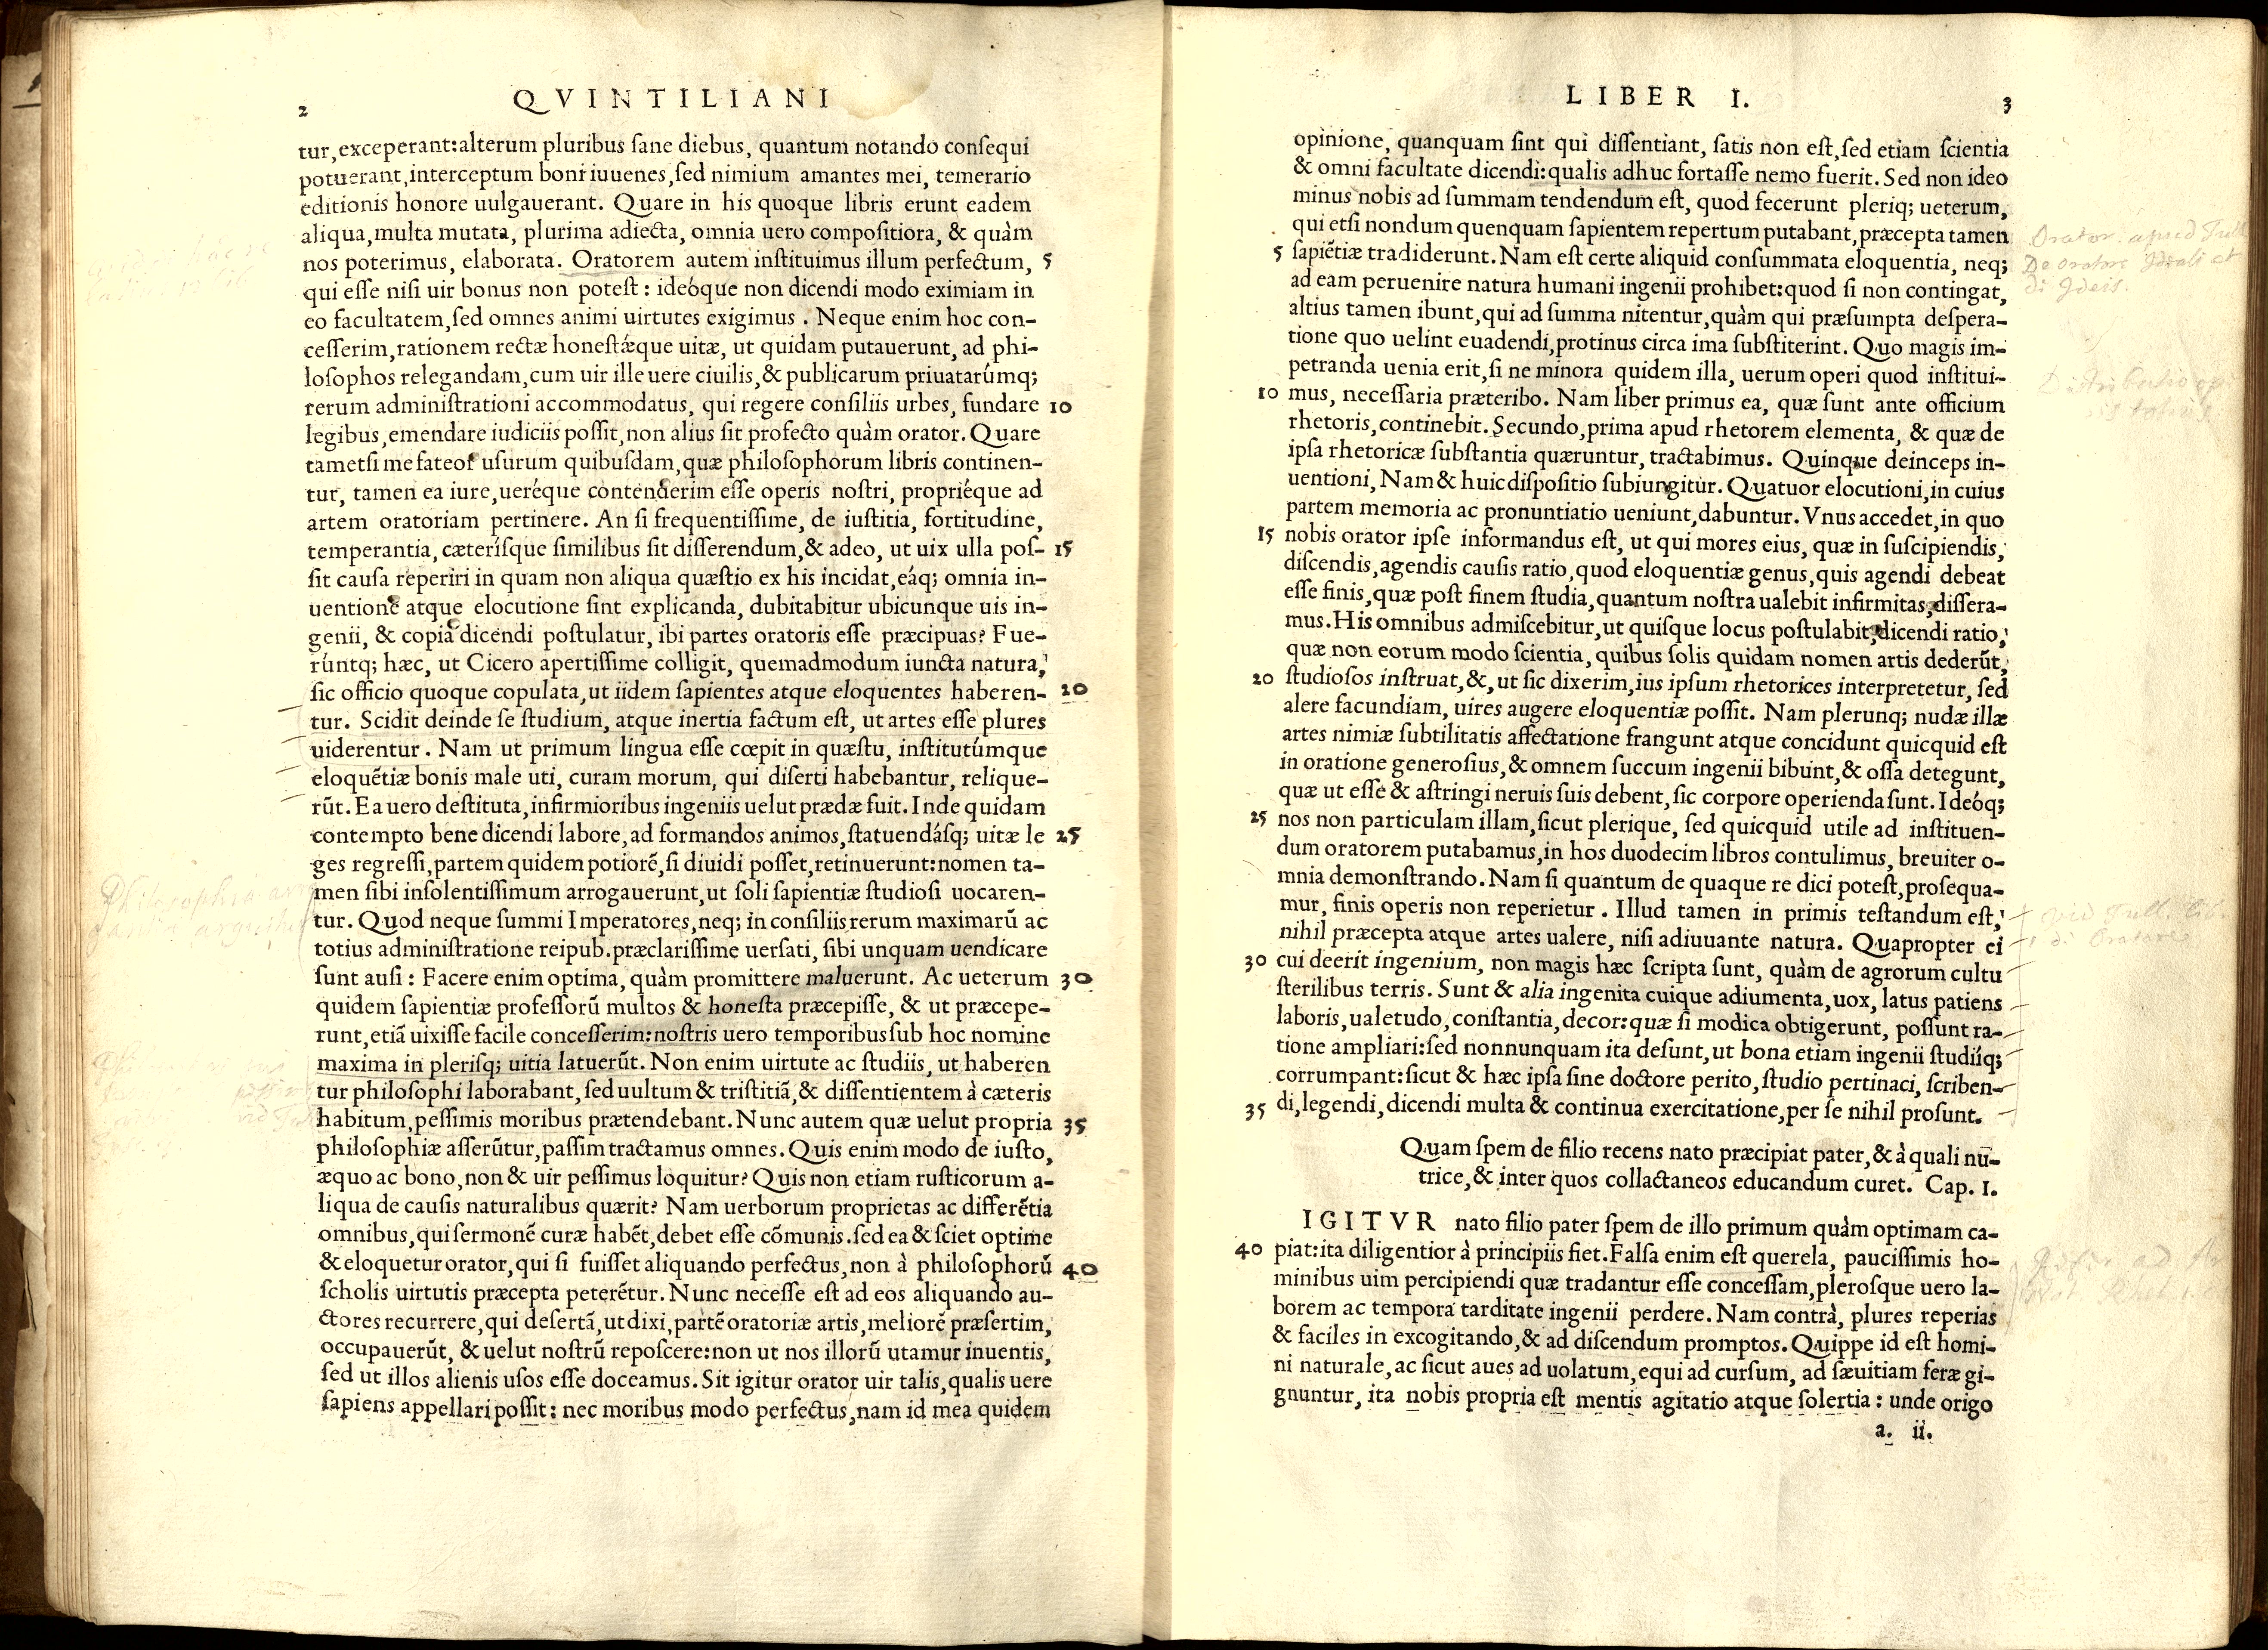 2
QVINTILIANI
tur, exceperant: alterum pluribus ſane diebus, quantum notando conſequi
potuerant, interceptum boni iuuenes, ſed nimium amantes mei, temerario
editionis honore uulgauerant. Quare in his quoque libris erunt eadem
aliqua, multa mutata, plurima adiecta, omnia uero compoſitiora, & quàm
nos poterimus, elaborata. Oratorem autem inſtituimus illum perfectum, 5
qui eſſe niſi uir bonus non poteſt: ideóque non dicendi modo eximiam in
eo facultatem, ſed omnes animi uirtutes exigimus. Neque enim hoc con-
ceſſerim, rationem rectæ honeſtǽque uitæ, ut quidam putauerunt, ad phi-
loſophos relegandam, cum uir ille uere ciuilis, & publicarum priuatarúmq;
rerum adminiſtrationi accommodatus, qui regere conſiliis urbes, fundare 10
legibus, emendare iudiciis poſſit, non alius ſit profecto quàm orator. Quare
tametſi me fateor uſurum quibuſdam, quæ philoſophorum libris continen-
tur, tamen ea iure, ueréque contenderim eſſe operis noſtri, propriéque ad
artem oratoriam pertinere. An ſi frequentiſſime, de iuſtitia, fortitudine,
temperantia, cæteríſque ſimilibus ſit diſſerendum, & adeo, ut uix ulla poſ- 15
ſit cauſa reperiri in quam non aliqua quæſtio ex his incidat, eáq; omnia in-
uentione atque elocutione ſint explicanda, dubitabitur ubicunque uis in-
genii, & copia dicendi poſtulatur, ibi partes oratoris eſſe præcipuas? Fue-
rúntq; hæc, ut Cicero apertiſſime colligit, quemadmodum iuncta natura,
ſic officio quoque copulata, ut iidem ſapientes atque eloquentes haberen- 20
tur. Scidit deinde ſe ſtudium, atque inertia factum eſt, ut artes eſſe plures
uiderentur. Nam ut primum lingua eſſe cœpit in quæſtu, inſtitutúmque
eloquẽtiæ bonis male uti, curam morum, qui diſerti habebantur, relique-
rũt. Ea uero deſtituta, infirmioribus ingeniis uelut prædæ fuit. Inde quidam
contempto bene dicendi labore, ad formandos animos, ſtatuendáſq; uitæ le 25
ges regreſſi, partem quidem potiorẽ, ſi diuidi poſſet, retinuerunt: nomen ta-
men ſibi inſolentiſſimum arrogauerunt, ut ſoli ſapientiæ ſtudioſi uocaren-
tur. Quod neque ſummi Imperatores, neq; in conſiliis rerum maximarũ ac
totius adminiſtratione reipub. præclariſſime uerſati, ſibi unquam uendicare
ſunt auſi: Facere enim optima, quàm promittere maluerunt. Ac ueterum 30
quidem ſapientiæ profeſſorũ multos & honeſta præcepiſſe, & ut præcepe-
runt, etiã uixiſſe facile conceſſerim: noſtris uero temporibus ſub hoc nomine
maxima in pleriſq; uitia latuerũt. Non enim uirtute ac ſtudiis, ut haberen
tur philoſophi laborabant, ſed uultum & triſtitiã, & diſſentientem à cæteris
habitum, peſſimis moribus prætendebant. Nunc autem quæ uelut propria 35
philoſophiæ aſſerũtur, paſſim tractamus omnes. Quis enim modo de iuſto,
æquo ac bono, non & uir peſſimus loquitur? Quis non etiam ruſticorum a-
liqua de cauſis naturalibus quærit? Nam uerborum proprietas ac differẽtia
omnibus, qui ſermonẽ curæ habẽt, debet eſſe cõmunis. ſed ea & ſciet optime
& eloquetur orator, qui ſi fuiſſet aliquando perfectus, non à philoſophorũ 40
ſcholis uirtutis præcepta peterẽtur. Nunc neceſſe eſt ad eos aliquando au-
ctores recurrere, qui deſertã, ut dixi, partẽ oratoriæ artis, meliorẽ præſertim,
occupauerũt, & uelut noſtrũ repoſcere: non ut nos illorũ utamur inuentis,
ſed ut illos alienis uſos eſſe doceamus. Sit igitur orator uir talis, qualis uere
ſapiens appellari poſſit: nec moribus modo perfectus, nam id mea quidem
LIBER I.
3
opinione, quanquam ſint qui diſſentiant, ſatis non eſt, ſed etiam ſcientia
& omni facultate dicendi: qualis adhuc fortaſſe nemo fuerit. Sed non ideo
minus nobis ad ſummam tendendum eſt, quod fecerunt pleriq; ueterum,
qui etſi nondum quenquam ſapientem repertum putabant, præcepta tamen
5 ſapiẽtiæ tradiderunt. Nam eſt certe aliquid conſummata eloquentia, neq;
ad eam peruenire natura humani ingenii prohibet: quod ſi non contingat,
altius tamen ibunt, qui ad ſumma nitentur, quàm qui præſumpta deſpera-
tione quo uelint euadendi, protinus circa ima ſubſtiterint. Quo magis im-
petranda uenia erit, ſi ne minora quidem illa, uerum operi quod inſtitui-
10 mus, neceſſaria præteribo. Nam liber primus ea, quæ ſunt ante officium
rhetoris, continebit. Secundo, prima apud rhetorem elementa, & quæ de
ipſa rhetoricæ ſubſtantia quæruntur, tractabimus. Quinque deinceps in-
uentioni, Nam & huic diſpoſitio ſubiungitur. Quatuor elocutioni, in cuius
partem memoria ac pronuntiatio ueniunt, dabuntur. Vnus accedet, in quo
15 nobis orator ipſe informandus eſt, ut qui mores eius, quæ in ſuſcipiendis,
diſcendis, agendis cauſis ratio, quod eloquentiæ genus, quis agendi debeat
eſſe finis, quæ poſt finem ſtudia, quantum noſtra ualebit infirmitas, diſſera-
mus. His omnibus admiſcebitur, ut quiſque locus poſtulabit, dicendi ratio,
quæ non eorum modo ſcientia, quibus ſolis quidam nomen artis dederũt,
20 ſtudioſos inſtruat, &, ut ſic dixerim, ius ipſum rhetorices interpretetur, ſed
alere facundiam, uires augere eloquentiæ poſſit. Nam plerunq; nudæ illæ
artes nimiæ ſubtilitatis affectatione frangunt atque concidunt quicquid eſt
in oratione generoſius, & omnem ſuccum ingenii bibunt, & oſſa detegunt,
quæ ut eſſe & aſtringi neruis ſuis debent, ſic corpore operienda ſunt. Ideóq;
25 nos non particulam illam, ſicut plerique, ſed quicquid utile ad inſtituen-
dum oratorem putabamus, in hos duodecim libros contulimus, breuiter o-
mnia demonſtrando. Nam ſi quantum de quaque re dici poteſt, proſequa-
mur, finis operis non reperietur. Illud tamen in primis teſtandum eſt,
nihil præcepta atque artes ualere, niſi adiuuante natura. Quapropter ei
30 cui deerit ingenium, non magis hæc ſcripta ſunt, quàm de agrorum cultu
ſterilibus terris. Sunt & alia ingenita cuique adiumenta, uox, latus patiens
laboris, ualetudo, conſtantia, decor: quæ ſi modica obtigerunt, poſſunt ra-
tione ampliari: ſed nonnunquam ita deſunt, ut bona etiam ingenii ſtudiíq;
corrumpant: ſicut & hæc ipſa ſine doctore perito, ſtudio pertinaci, ſcriben-
35 di, legendi, dicendi multa & continua exercitatione, per ſe nihil proſunt.
Quam ſpem de filio recens nato præcipiat pater, & à quali nu-
trice, & inter quos collactaneos educandum curet. Cap. I.
IGITVR nato filio pater ſpem de illo primum quàm optimam ca-
40 piat: ita diligentior à principiis fiet. Falſa enim eſt querela, pauciſſimis ho-
minibus uim percipiendi quæ tradantur eſſe conceſſam, pleroſque uero la-
borem ac tempora tarditate ingenii perdere. Nam contrà, plures reperias
& faciles in excogitando, & ad diſcendum promptos. Quippe id eſt homi-
ni naturale, ac ſicut aues ad uolatum, equi ad curſum, ad ſæuitiam feræ gi-
gnuntur, ita nobis propria eſt mentis agitatio atque ſolertia: unde origo
a. ii.
Orator. apud Tull
De oratore Ideali et
di Ideis.
Distributio
totius
vid Tull. lib.
di Oratore
Philosophia